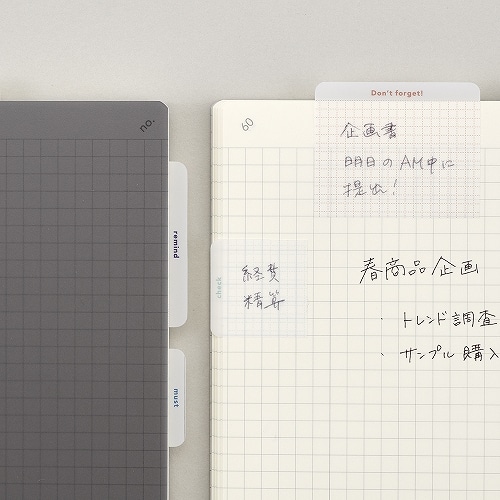 no.
remind
must
60
Don't forget!
企画書
明日のAM中に
提出！
check
経費
精算
春商品企画
・トレンド調査
・サンプル購入